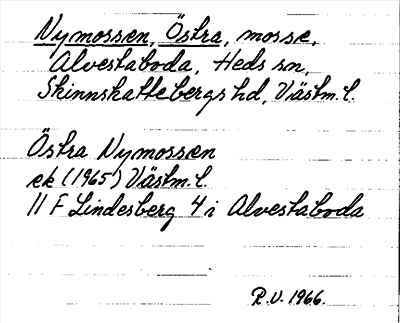 Nymossen, Östra, mosse,
Alvestaboda, Heds sn,
Skinnskattebergs hd, Västm. l.
Östra Nymossen
ek (1965) Västm. l.
11 F Lindesberg 4 i Alvestaboda
R.V. 1966.